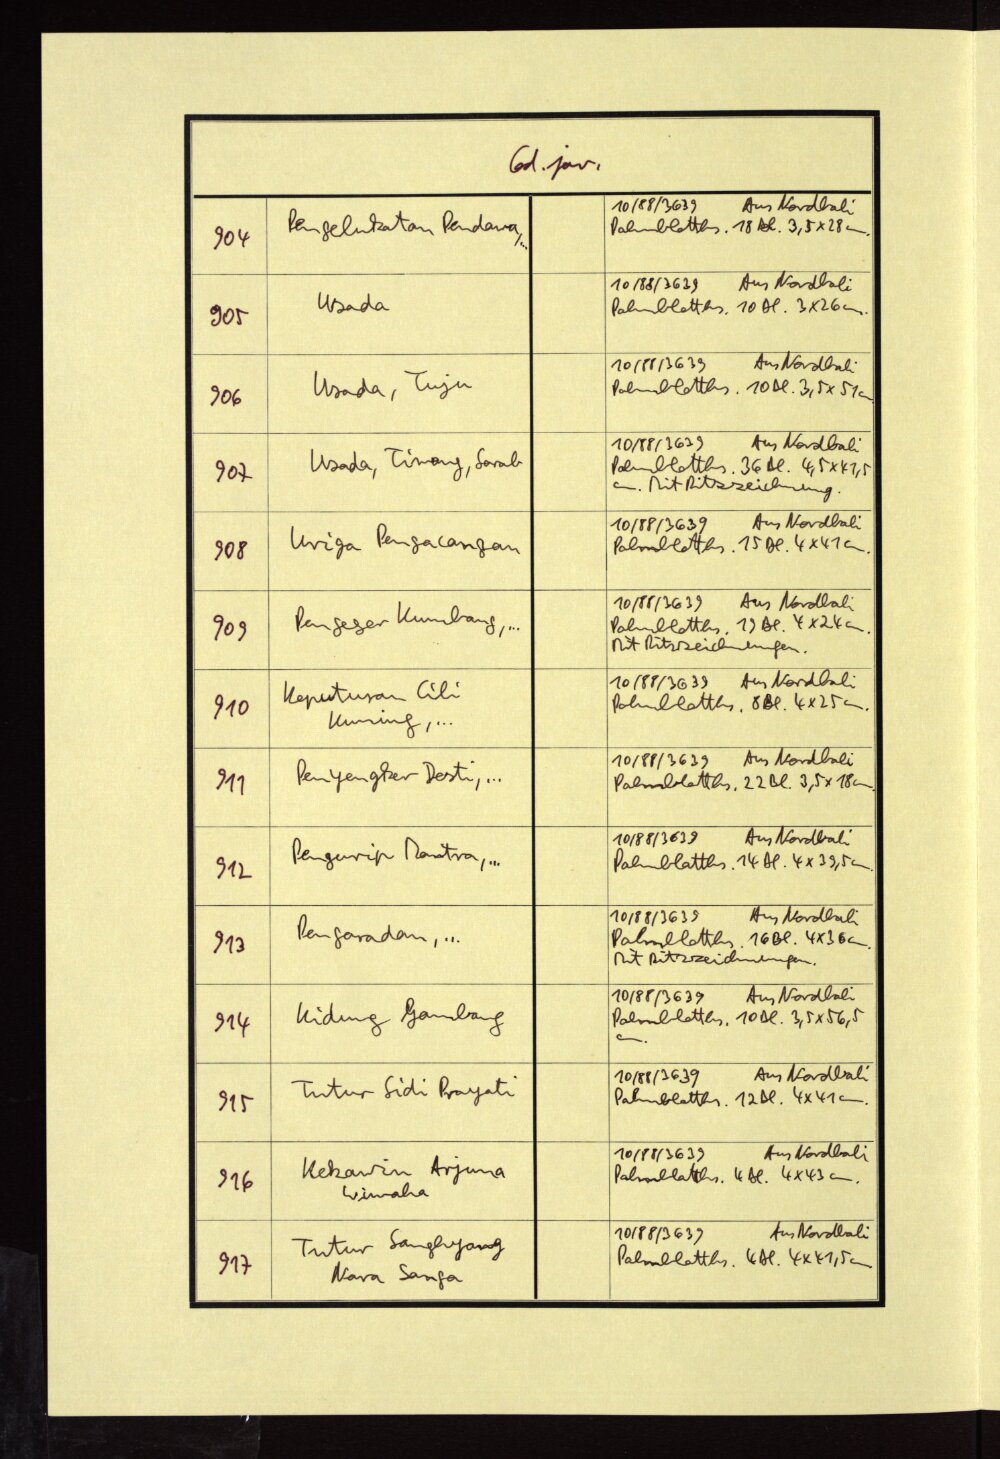 Cod. jav.
904 Pengelukatan Pandawa,... 10/88/3639 Aus Nordbali
Palmblatths. 18 Bl. 3,5x28 cm.
905 Usada 10/88/3639 Aus Nordbali
Palmblatths. 10 Bl. 3x26 cm.
906 Usada, Tuju 10/88/3639 Aus Nordbali
Palmblatths. 10 Bl. 3,5x51 cm.
907 Usada, Tiwang, Sarab 10/88/3639 Aus Nordbali
Palmblatths. 36 Bl. 4,5x41,5
cm. Mit Ritzzeichnung.
908 Uriga Pengacangan 10/88/3639 Aus Nordbali
Palmblatths. 15 Bl. 4x41 cm.
909 Pengeger Kumbang,... 10/88/3639 Aus Nordbali
Palmblatths. 19 Bl. 4x24 cm.
Mit Ritzzeichnungen.
910 Keputusan Cili 10/88/3639 Aus Nordbali
Kuning,... Palmblatths. 8 Bl. 4x25 cm.
911 Penyengker Desti,... 10/88/3639 Aus Nordbali
Palmblatths. 22 Bl. 3,5x18 cm.
912 Pengurip Mantra,... 10/88/3639 Aus Nordbali
Palmblatths. 14 Bl. 4x39,5 cm.
913 Pengaradan,... 10/88/3639 Aus Nordbali
Palmblatths. 16 Bl. 4x36 cm.
Mit Ritzzeichnungen.
914 Kidung Gambang 10/88/3639 Aus Nordbali
Palmblatths. 10 Bl. 3,5x56,5
cm.
915 Tutur Sidi Prayati 10/88/3639 Aus Nordbali
Palmblatths. 12 Bl. 4x41 cm.
916 Kekawin Arjuna 10/88/3639 Aus Nordbali
Wiwaha Palmblatths. 4 Bl. 4x43 cm.
917 Tutur Sanghyang 10/88/3639 Aus Nordbali
Nawa Sanga Palmblatths. 4 Bl. 4x41,5 cm